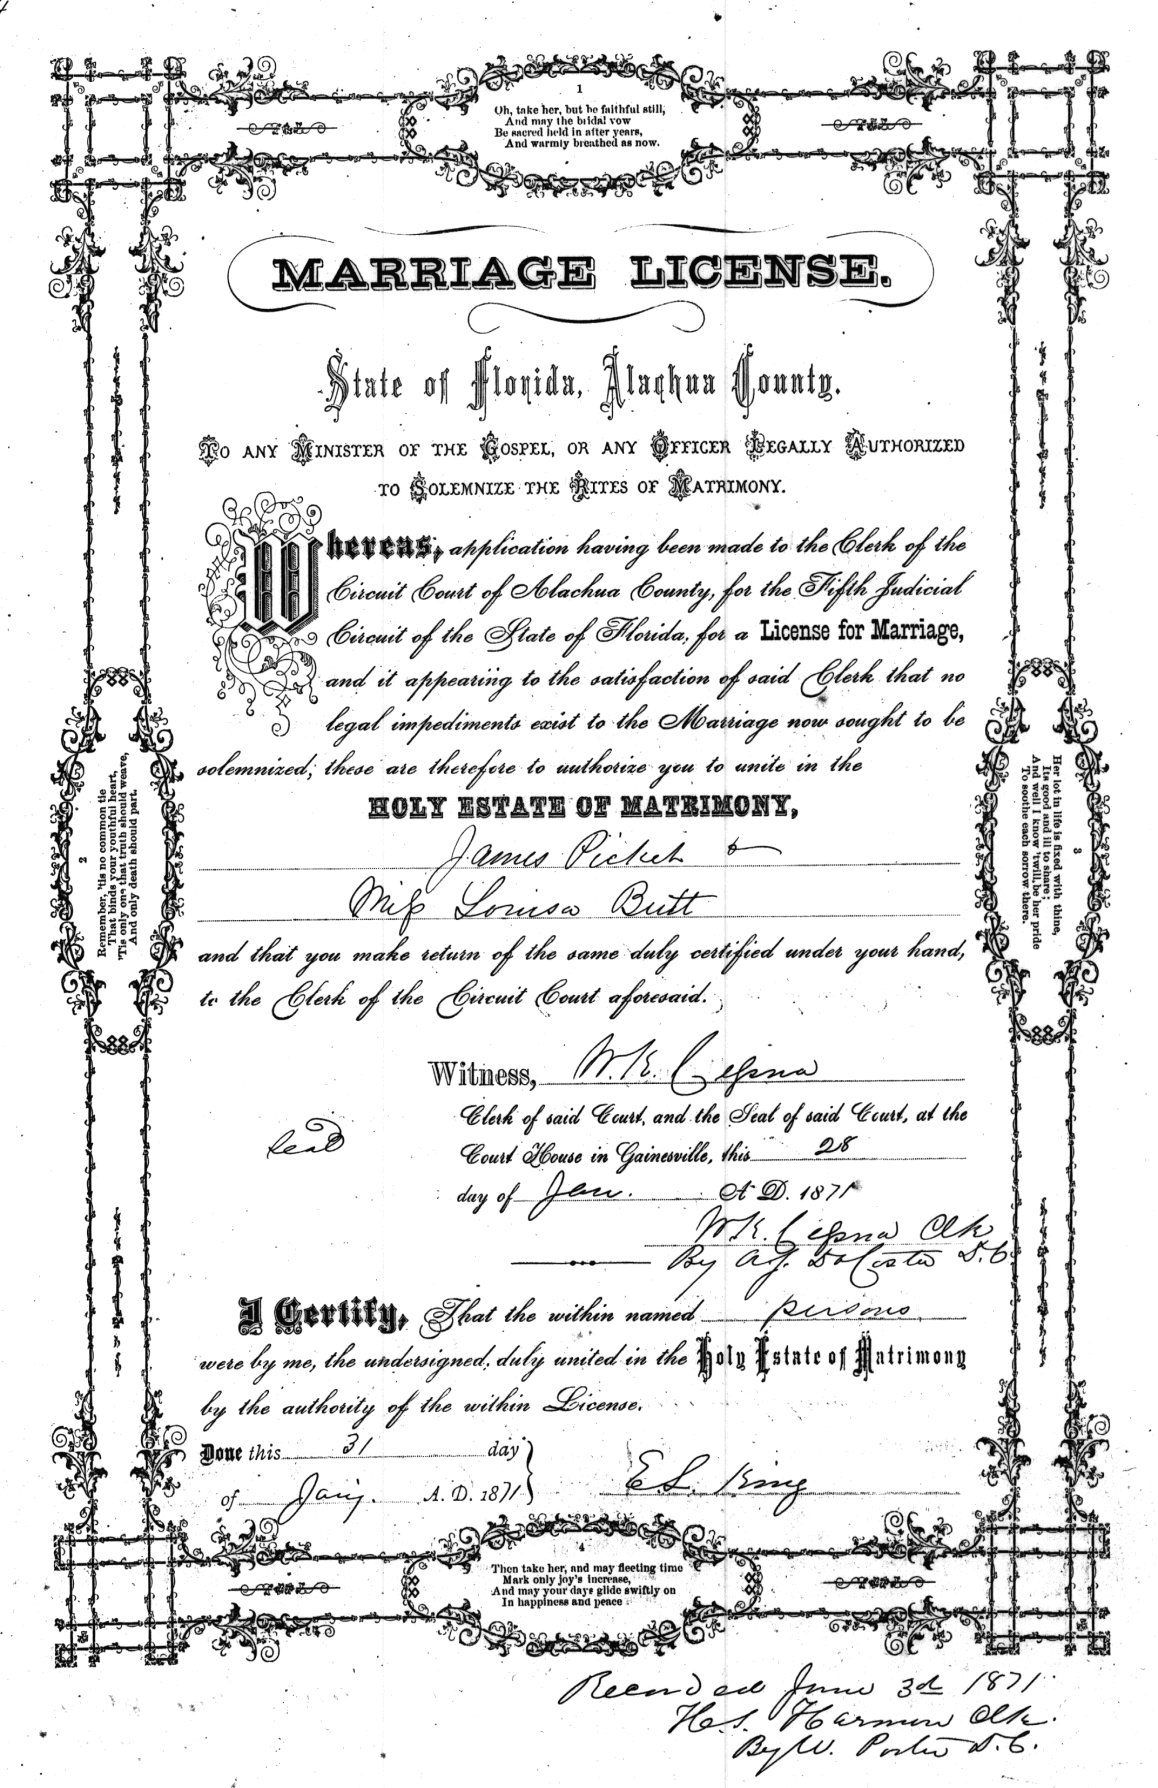 1
Oh, take her, but be faithful still,
And may the bridal vow
Be sacred held in after years,
And warmly breathed as now.
MARRIAGE LICENSE.
State of Florida, Alachua County.
TO ANY MINISTER OF THE GOSPEL, OR ANY OFFICER LEGALLY AUTHORIZED
TO SOLEMNIZE THE RITES OF MATRIMONY.
Whereas, application having been made to the Clerk of the
Circuit Court of Alachua County, for the Fifth Judicial
Circuit of the State of Florida, for a License for Marriage,
and it appearing to the satisfaction of said Clerk that no
legal impediments exist to the Marriage now sought to be
solemnized; these are therefore to authorize you to unite in the
HOLY ESTATE OF MATRIMONY,
James Picket &
Miss Louisa Butt
and that you make return of the same duly certified under your hand,
to the Clerk of the Circuit Court aforesaid.
Witness, W. K. Cessna
Clerk of said Court, and the Seal of said Court, at the
Seal
Court House in Gainesville, this 28
day of Jan. A D. 1871
W. K. Cessna Clk
By A.J. DaCosta D.C.
I Certify, That the within named persons
were by me, the undersigned, duly united in the Holy Estate of Matrimony
by the authority of the within License.
Done this 31 day
of Jany. A. D. 1871
E S. King
2
Remember, 'tis no common tie
That binds your youthful heart,
'Tis only one that truth should weave,
And only death should part.
3
Her lot in life is fixed with thine,
Its good and ill to share;
And well I know 'twill be her pride
To soothe each sorrow there.
4
Then take her, and may fleeting time
Mark only joy's increase,
And may your days glide swiftly on
In happiness and peace
Recorded June 3d 1871
H.S. Harmon Clk.
By W. Porter D.C.